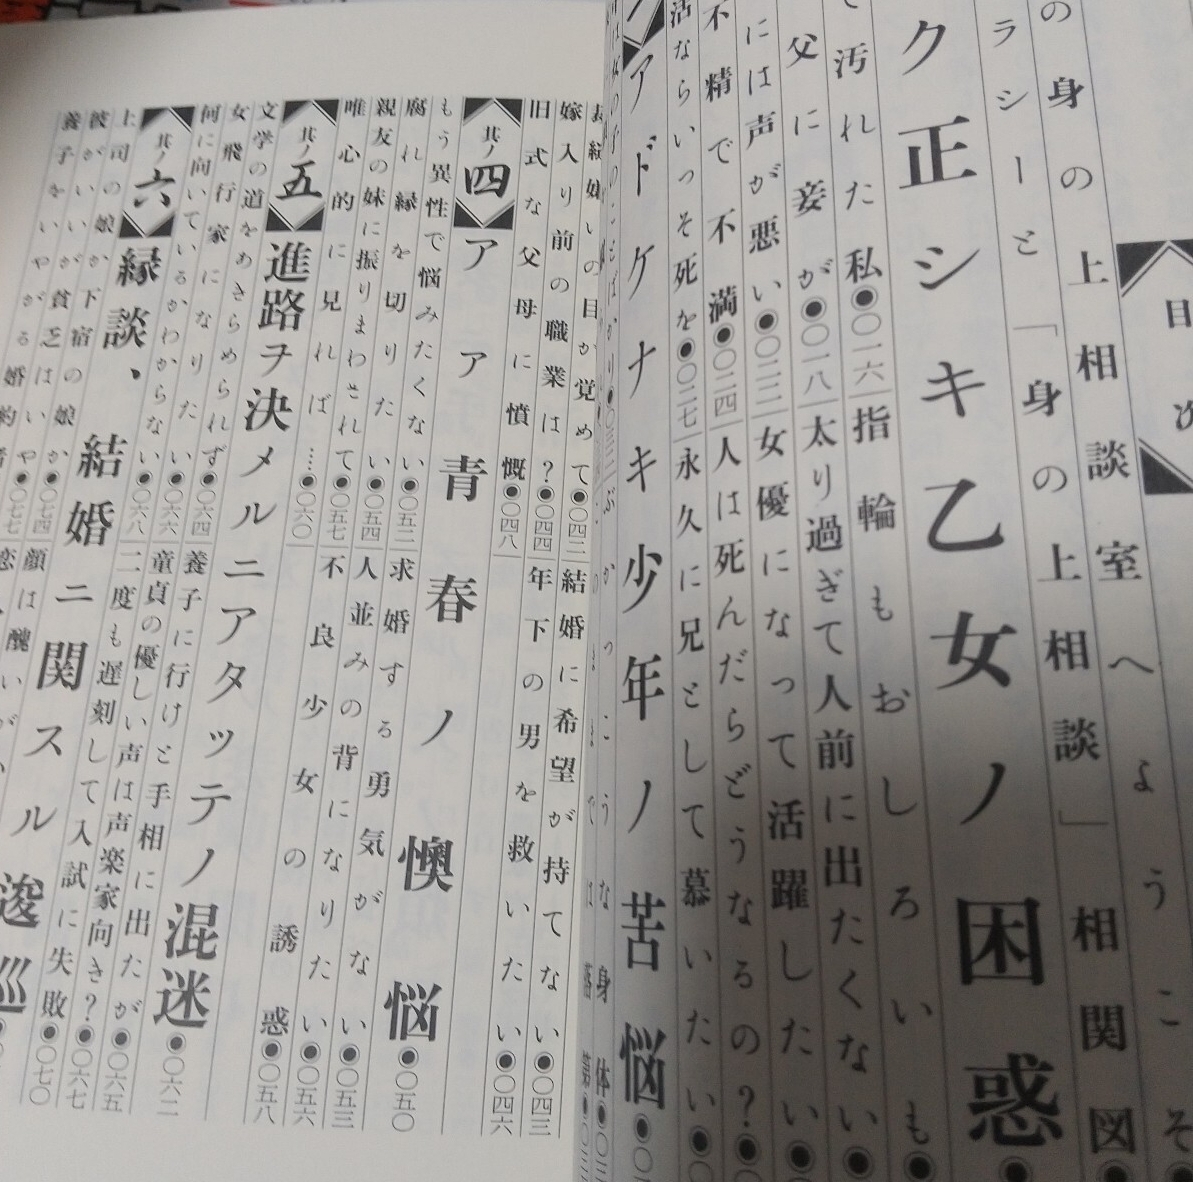 目次
の身の上相談室へようこそ
ラシーと「身の上相談」相関図
ク正シキ乙女ノ困惑
て汚れた私●〇一六
指輪もおしろいも
父に妾が●〇一八
太り過ぎて人前に出たくない
には声が悪い●〇二二
女優になって活躍したい
不精で不満●〇二四
人は死んだらどうなるの?
活ならいっそ死を●〇二七
永久に兄として慕いたい
アドケナキ少年ノ苦悩
嫁入り前の目が覚めて●〇四二
結婚に希望が持てない●〇四三
嫁入り前の職業は?●〇四四
年下の男を救いたい●〇四六
旧式な父母に憤慨●〇四八
其ノ四
アア青春ノ懊悩●〇五〇
もう異性で悩みたくない●〇五二
求婚する勇気がない●〇五三
腐れ縁を切りたい●〇五四
人並みの背になりたい●〇五六
親友の妹に振りまわされて●〇五七
不良少女の誘惑●〇五八
唯心的に見れば…●〇六〇
其ノ五
進路ヲ決メルニアタッテノ混迷●〇六二
文学の道をあきらめられず●〇六四
養子に行けと手相に出たが●〇六五
女飛行家になりたい●〇六六
童貞の優しい声は声楽家向き?●〇六七
何に向いているかわからない●〇六八
二度も遅刻して入試に失敗●〇七〇
其ノ六
縁談、結婚ニ関スル逡巡
上司の娘か下宿の娘か●〇七四
顔は醜いが
彼がいいが貧乏はいや●〇七七
恋
養子をいやがる婚約者